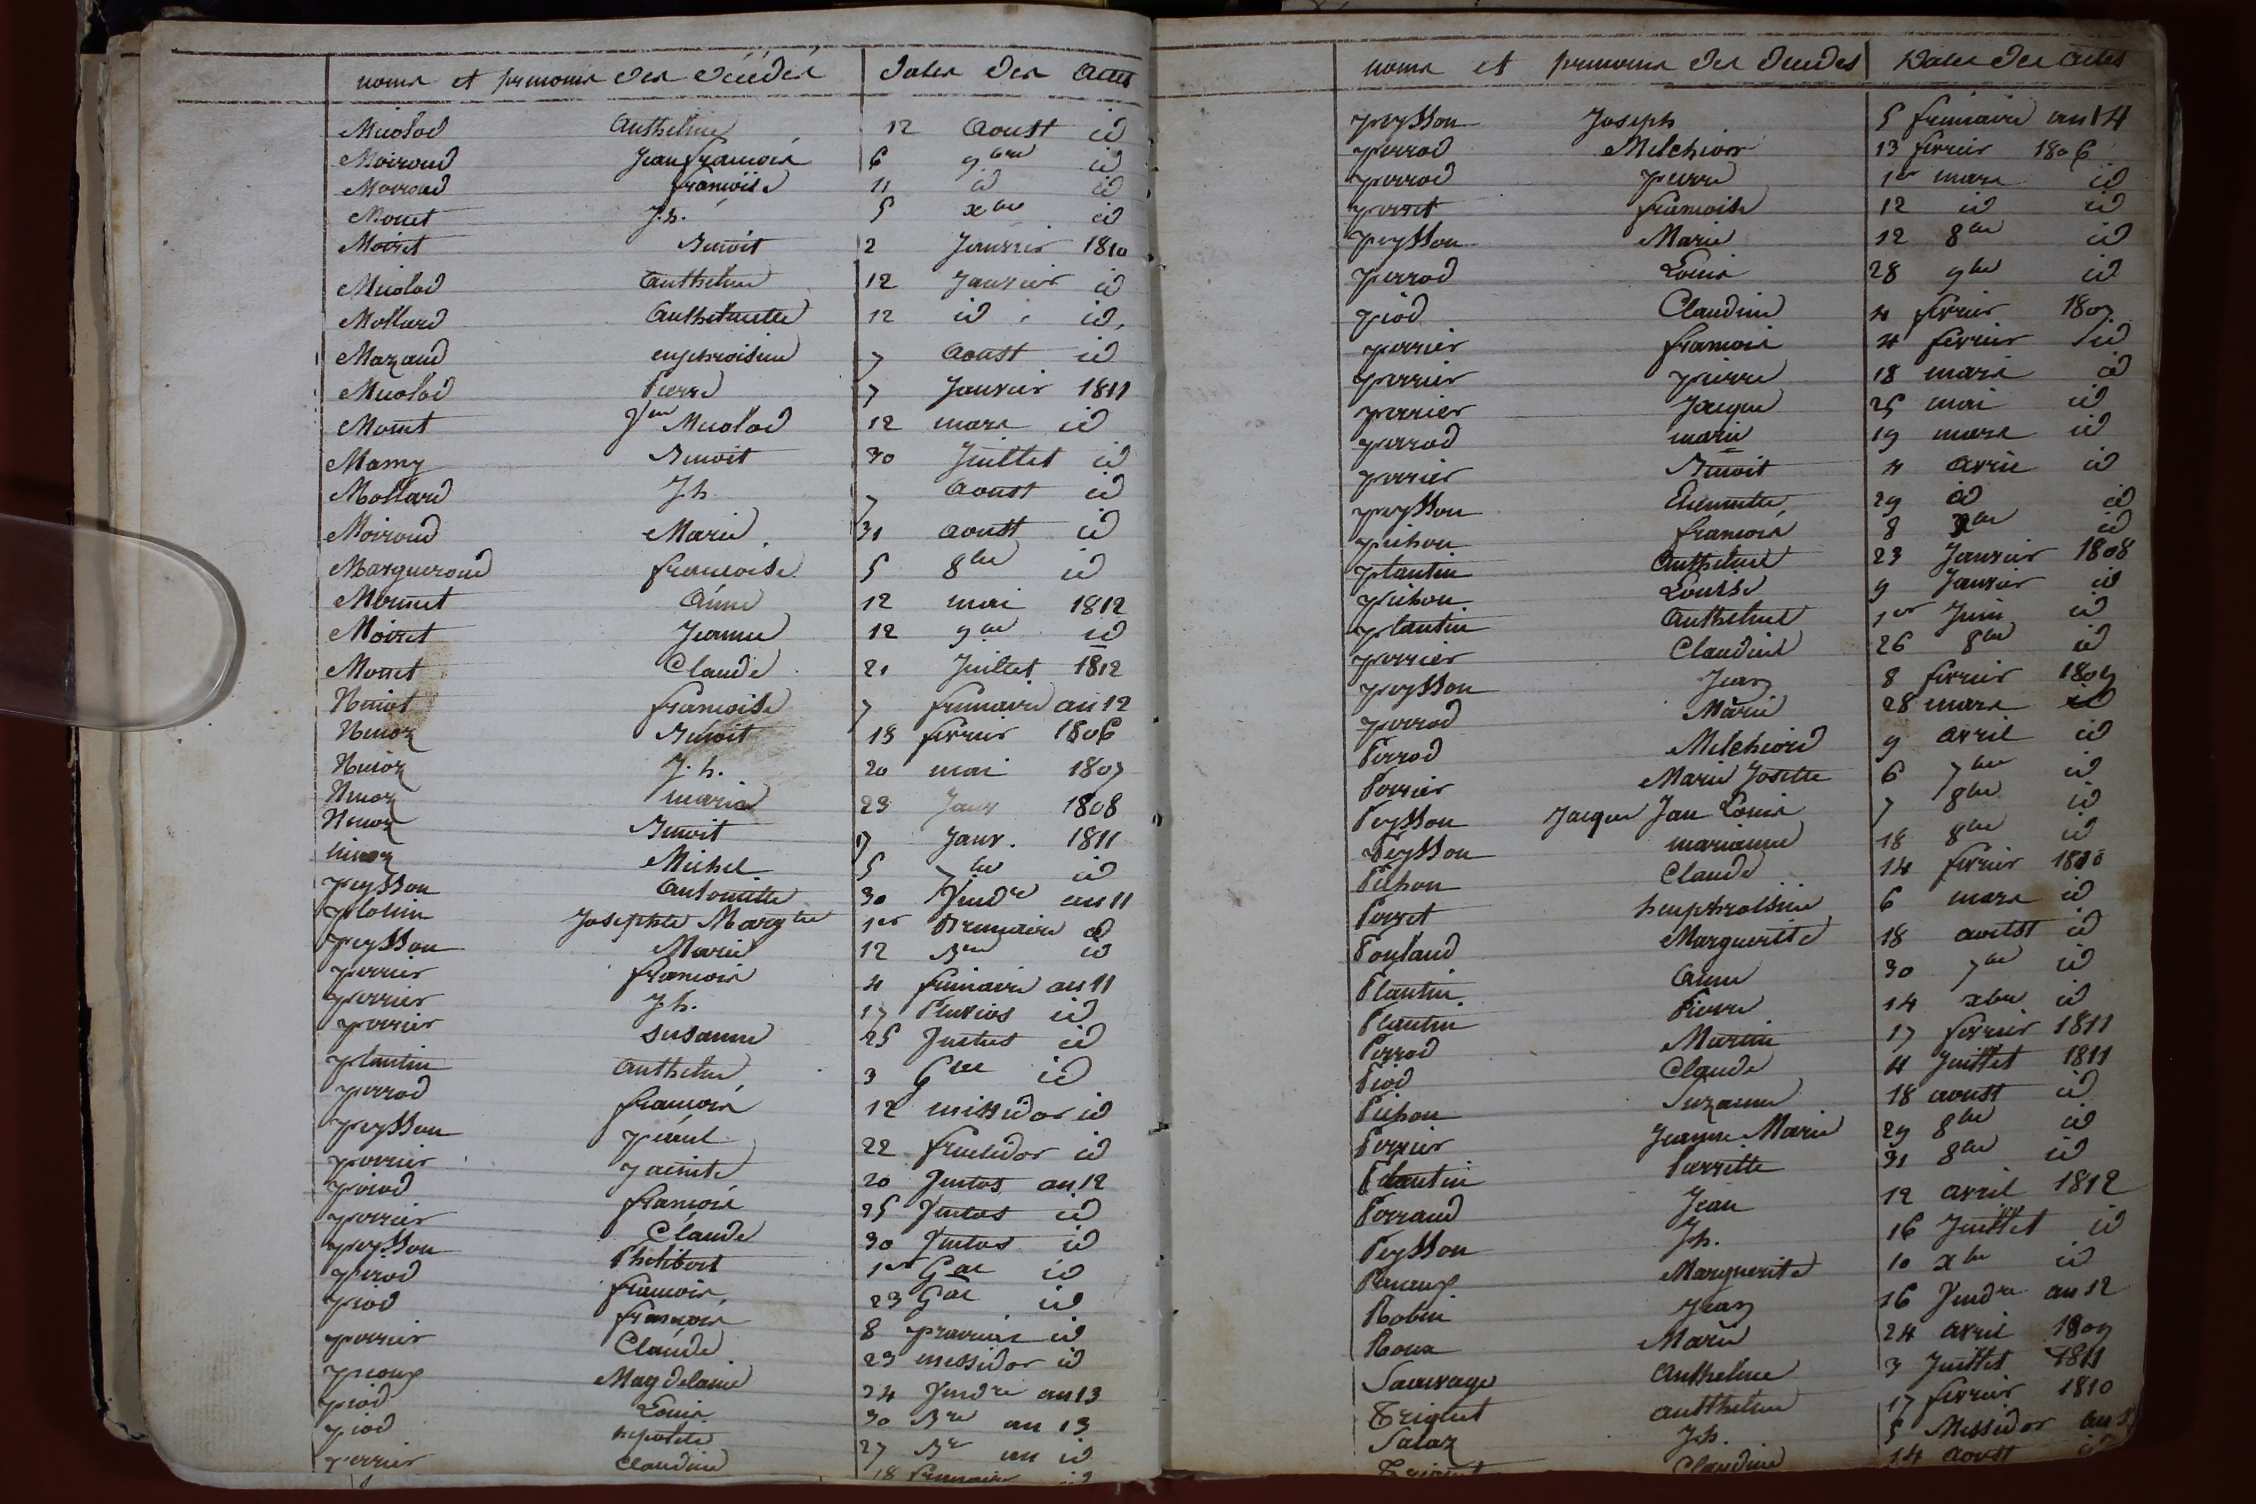 noms et prenoms des décédés dates des actes
Micolod Anthelme 12 Aoust id
Moiroud Jean francois 6 9bre id
Moiroud francoise 11 id id
Monet J.h. 5 xbre id
Moiret Benoit 2 Janvier 1810
Micolod Anthelme 12 Janvier id
Mollard Anthelmette 12 id id
Mazaud euphroisine 7 Aoust id
Micolod Pierre 7 Janvier 1811
Monet Micolod 12 mars id
Mamy Benoit 30 Juillet id
Mollard Jh. 7 Aoust id
Moiroud Marie 31 aoust id
Margueroud francoise 5 8bre id
Monnet Anne 12 mai 1812
Moiret Jeanne 12 9bre id
Monet Claude 21 Juillet 1812
francoise 7 frimaire an 12
Ninoz Benoit 18 fevrier 1806
Ninoz J.h. 20 mai 1807
Ninoz maria 23 Janv 1808
Ninoz Benoit 9 Janv. 1811
ninoz Michel 5 7bre id
peysson Antoinette 30 Vendre an 11
Josephte Margte 1er Brumaire id
peysson Marie 12 Bre id
perrier francois 4 frimaire an 11
perrier Jh. 17 Pluvios id
perrier Susanne 25 Ventos id
plantin Anthelme 3 Gal id
perrod francois 12 messidor id
peysson 22 fructidor id
perrier Jacinte 20 Ventos an 12
piod francois 25 Ventos id
perrier Claude 30 Ventos id
peysson Philibert 1er Gal id
perod francois 23 Gal id
piod francois 8 prairial id
perrier Claude 23 messidor id
Magdelaine 24 Vendre an 13
piod Louis 30 Bre an 13
piod hipolite 27 Bre an id
perrier Claudine 18 frimaire id
noms et prenoms des decedes Dates des actes
peysson Joseph 5 frimaire an 14
perrod Melchior 13 fevrier 1806
perrod pierre 1er mars id
perret francoise 12 id id
peysson Marie 12 8bre id
perrod Louis 28 9bre id
piod Claudine 4 fevrier 1807
perrier francois 4 fevrier id
perrier pierre 18 mars id
perrier Jacque 25 mai id
perrod marie 19 mars id
perrier Benoit 4 Avril id
peysson Etiennette 29 id id
pichon francois 8 xbre id
plantin Anthelme 23 Janvier 1808
pichon Louise 9 Janvier id
plantin Anthelme 1er Juin id
perrier Claudine 26 8bre id
peysson Jean 8 fevrier 1809
perrod Marie 28 mars id
Perrod Melchiore 9 avril id
Perrier Marie Josette 6 7bre id
Peysson Jacques Jean Louis 7 8bre id
Peysson marianne 18 8bre id
Pichon Claude 14 fevrier 1810
Perret heuphroisine 6 mars id
Poylaud Marguerite 18 aoust id
Plantin Anne 30 7bre id
Plantin Pierre 14 xbre id
Perrod Martin 17 fevrier 1811
Piod Claude 4 Juillet 1811
Pichon Suzanne 18 aoust id
Perrier Jeanne Marie 29 8bre id
Plantin Pierrette 31 8bre id
Perraud Jean 12 avril 1812
Peysson Jh. 16 Juillet id
Marguerite 10 xbre id
Robin Jean 16 Vendre an 12
Roux Marie 24 avril 1809
Sauvage Anthelme 3 Juillet 1811
Triglut antthelme 17 fevrier 1810
Salaz Jh. 5 Messidor an
Claudine 14 aoust id